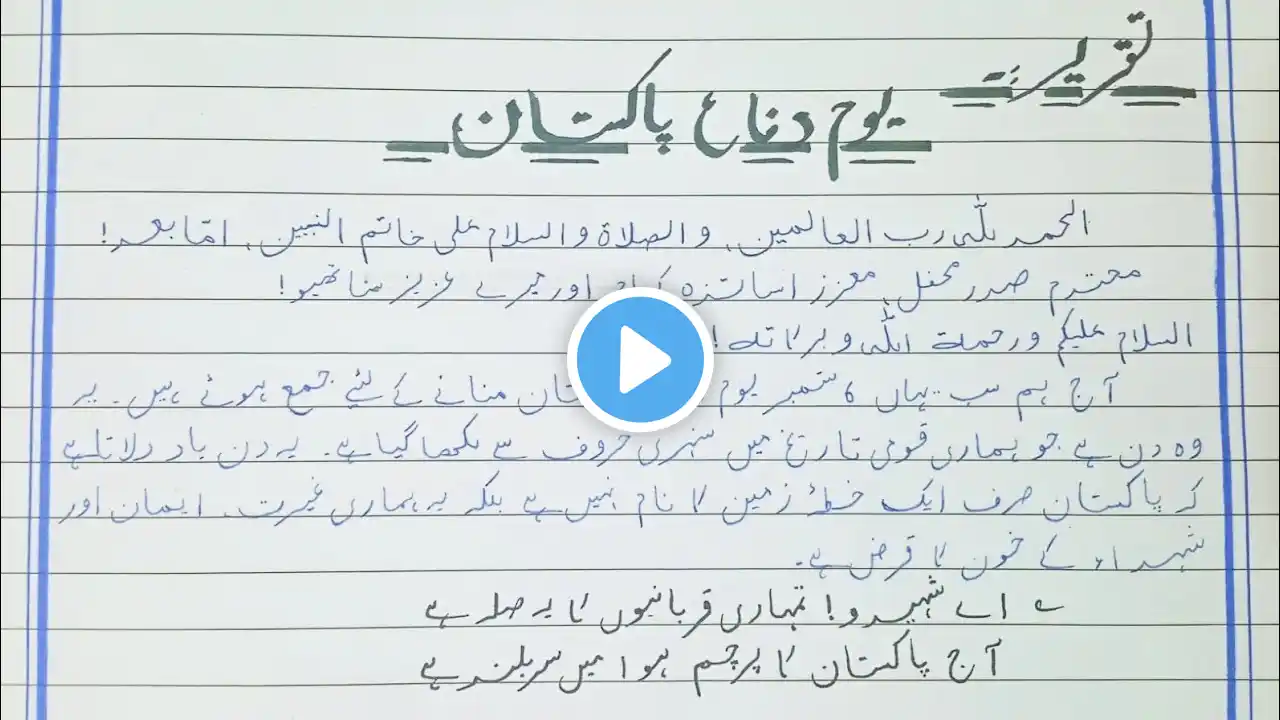 تقریر:-
یوم دفاع پاکستان
الحمد للہ رب العالمین، والصلاۃ والسلام علی خاتم النبیین، امّا بعد!
محترم صدر محفل، معزز اساتذہ اور میرے عزیز ساتھیو!
السلام علیکم ورحمۃ اللہ وبرکاتہ!
آج ہم سب یہاں 6 ستمبر یوم منانے کے لئے جمع ہوئے ہیں۔ یہ
وہ دن ہے جو ہماری قومی تاریخ میں سنہری حروف سے لکھا گیا ہے۔ یہ دن یاد دلاتا ہے
کہ پاکستان صرف ایک خطۂ زمین کا نام نہیں ہے بلکہ یہ ہماری غیرت، ایمان اور
شہداء کے خون کا قرض ہے۔
؎ اے شہیدو! تمہاری قربانیوں کا یہ صلہ ہے
آج پاکستان کا پرچم ہوا میں سربلند ہے